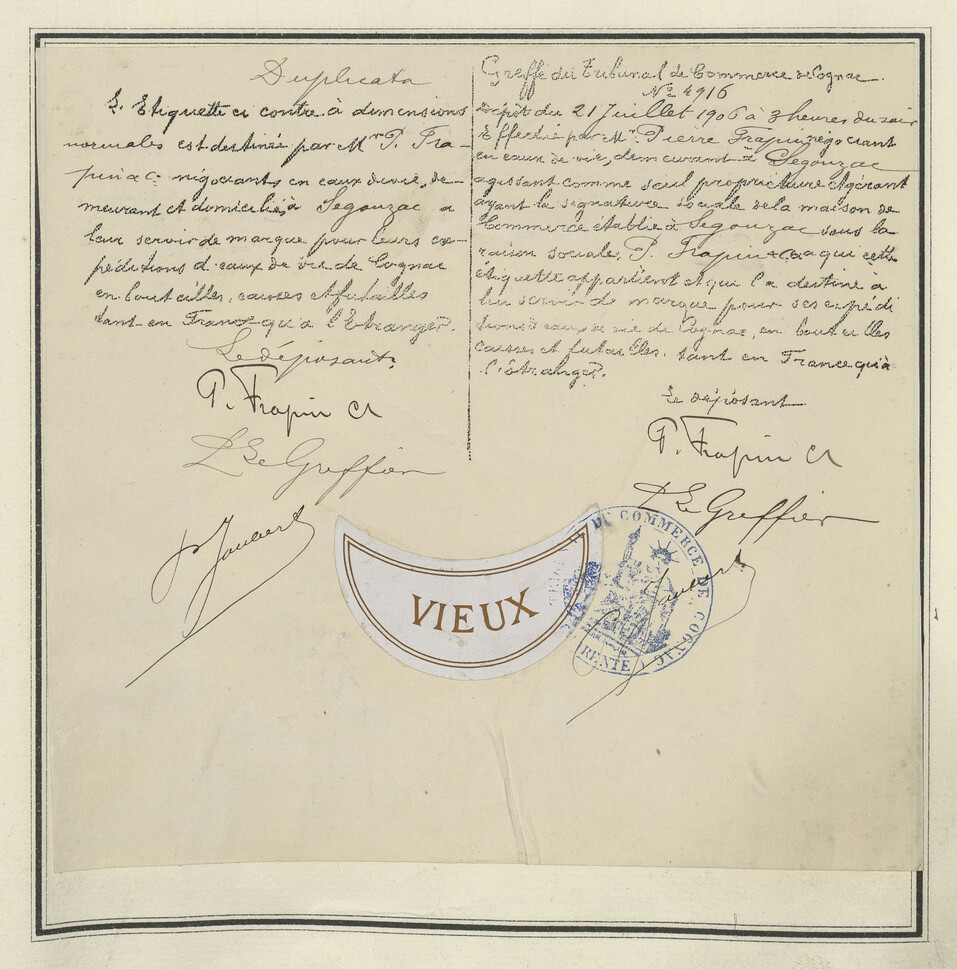 Duplicata
L. Etiquette ci contre à dimensions
normales est destinée par Mr. P. Fra-
pin & C. négociants en eaux de vie, de-
meurant et domiciliés à Segonzac a
leur servir de marque pour leurs ex-
péditions d'eaux de vie de Cognac
en bouteilles, caisses et futailles
tant en France qu'a l'Etranger.
Le déposant,
P. Frapin &
Le Greffier
Greffe du Tribunal de Commerce de Cognac
No 4916
Dépôt du 21 Juillet 1906 à 3 heures du soir
Effectué par Mr. Pierre Frapin négociant
en eaux de vie, demeurant à Segonzac
agissant comme seul propriétaire et gérant
ayant la signature sociale de la maison de
Commerce établie à Segonzac sous la
raison sociale, P. Frapin & C a qui cette
étiquette appartient et qui l'a destine à
lui servir de marque pour ses expédi
tions d'eaux de vie de Cognac, en bouteilles
caisses et futailles. tant en France qu'à
l'étranger.
Le déposant
P. Frapin &
Le Greffier
VIEUX
DU COMMERCE DE COGNAC